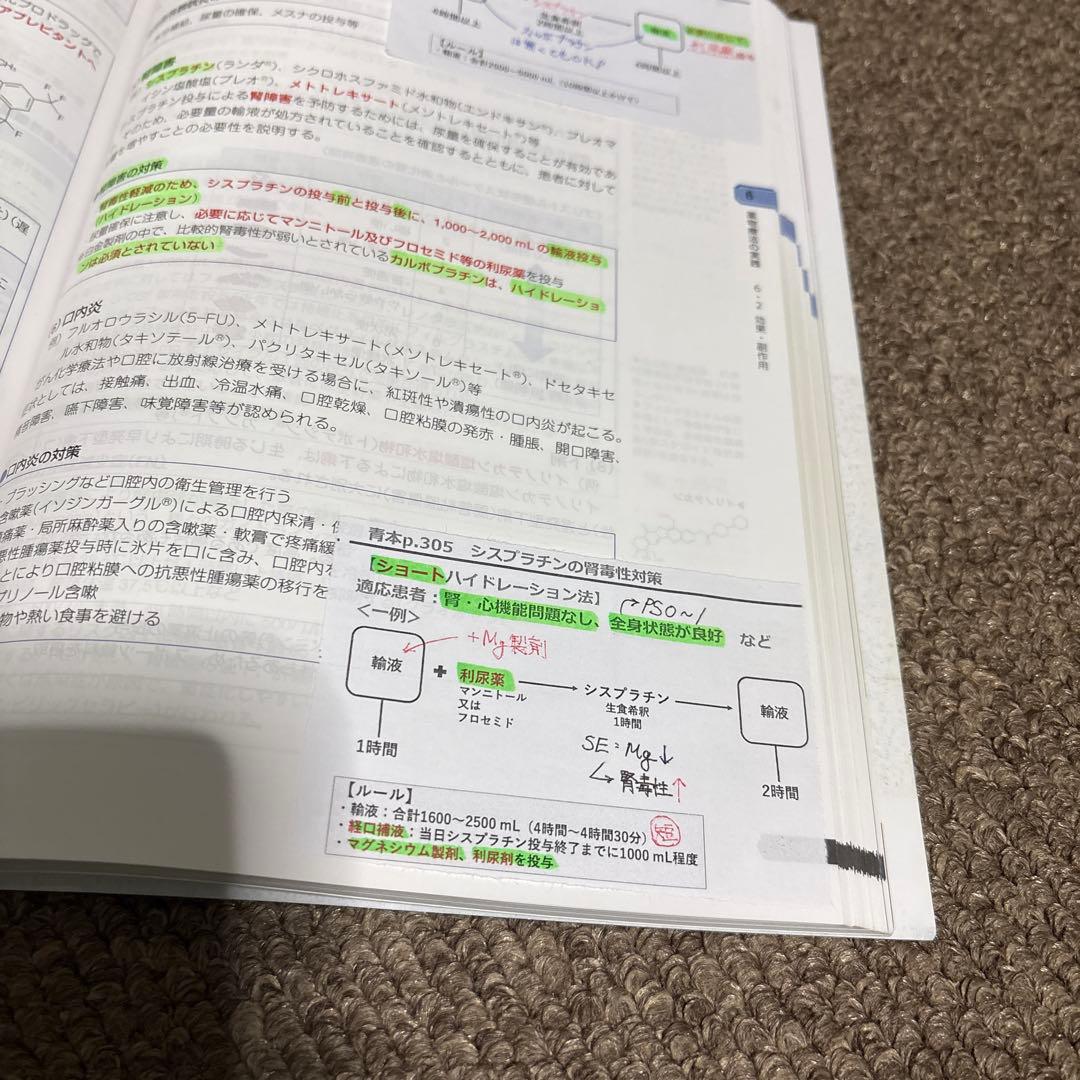 尿量の確保、メスナの投与等
プロドラッグで
アプレピタントへ
シスプラチン
生食希釈
2時間以上
【ルール】
シスプラチン(ランダ®)、シクロホスファミド水和物(エンドキサン®)、ブレオマ
イシン塩酸塩(ブレオ®)、メトトレキサート(メソトレキセート®)等
スプラチン投与による腎障害を予防するためには、尿量を確保することが有効であ
そのため、必要量の輸液が処方されていることを確認するとともに、患者に対して
を増やすことの必要性を説明する。
障害の対策
腎毒性軽減のため、シスプラチンの投与前と投与後に、1,000~2,000 mLの輸液投与
(ハイドレーション)
尿量確保に注意し、必要に応じてマンニトール及びフロセミド等の利尿薬を投与
白金製剤の中で、比較的腎毒性が弱いとされているカルボプラチンは、ハイドレーショ
ンは必須とされていない
6
薬物療法の実践 6・2 効果・副作用
口内炎
フルオロウラシル(5-FU)、メトトレキサート(メソトレキセート®)、ドセタキセ
ル水和物(タキソテール®)、パクリタキセル(タキソール®)等
がん化学療法や口腔に放射線治療を受ける場合に、紅斑性や潰瘍性の口内炎が起こる。
症状としては、接触痛、出血、冷温水痛、口腔乾燥、口腔粘膜の発赤・腫脹、開口障害、
構音障害、嚥下障害、味覚障害等が認められる。
口内炎の対策
ブラッシングなど口腔内の衛生管理を行う
含嗽薬(イソジンガーグル®)による口腔内保清・
鎮痛薬・局所麻酔薬入りの含嗽薬・軟膏で疼痛緩
悪性腫瘍薬投与時に氷片を口に含み、口腔内を
とにより口腔粘膜への抗悪性腫瘍薬の移行を
プリノール含嗽
物や熱い食事を避ける
青本p.305 シスプラチンの腎毒性対策
【ショートハイドレーション法】
→PS0~1
適応患者:腎・心機能問題なし、全身状態が良好 など
<一例>
+Mg製剤
輸液 + 利尿薬 シスプラチン 輸液
マンニトール
又は
フロセミド
生食希釈
1時間
1時間
SE:Mg↓
↳腎毒性↑
2時間
【ルール】
・輸液:合計1600~2500 mL(4時間~4時間30分) 短
・経口補液:当日シスプラチン投与終了までに1000 mL程度
・マグネシウム製剤、利尿剤を投与